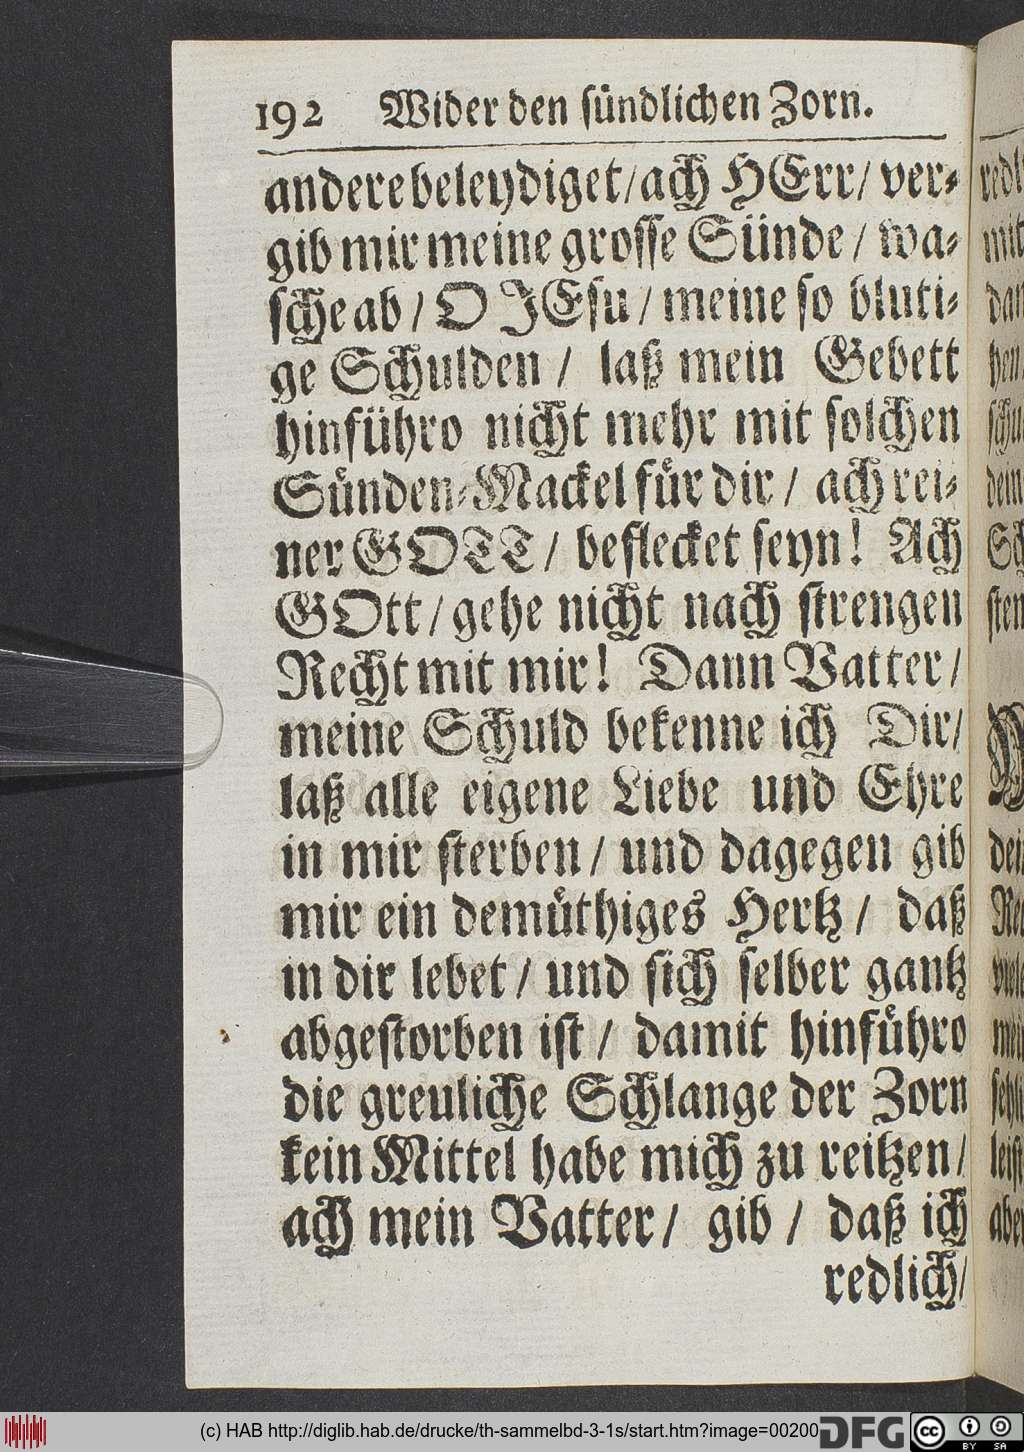 192 Wider den ſündlichen Zorn.
andere beleydiget/ ach HErr/ ver⸗
gib mir meine groſſe Sünde/ wa⸗
ſche ab/ O JEſu/ meine ſo bluti⸗
ge Schulden/ laß mein Gebett
hinführo nicht mehr mit ſolchen
Sünden⸗Mackel für dir/ ach rei⸗
ner GOTT/ beflecket ſeyn! Ach
GOtt/ gehe nicht nach ſtrengen
Recht mit mir! Dann Vatter/
meine Schuld bekenne ich Dir/
laß alle eigene Liebe und Ehre
in mir ſterben/ und dagegen gib
mir ein demüthiges Hertz/ daß
in dir lebet/ und ſich ſelber gantz
abgeſtorben iſt/ damit hinführo
die greuliche Schlange der Zorn
kein Mittel habe mich zu reitzen/
ach mein Vatter/ gib/ daß ich
redlich/
redl
mit
dan
hen/
ſchu
dem
Sch
ſten
dei
Re
viel
mei
ſehl
leiſt
aber
(c) HAB http://diglib.hab.de/drucke/th-sammelbd-3-1s/start.htm?image=00200
DFG
cc BY SA